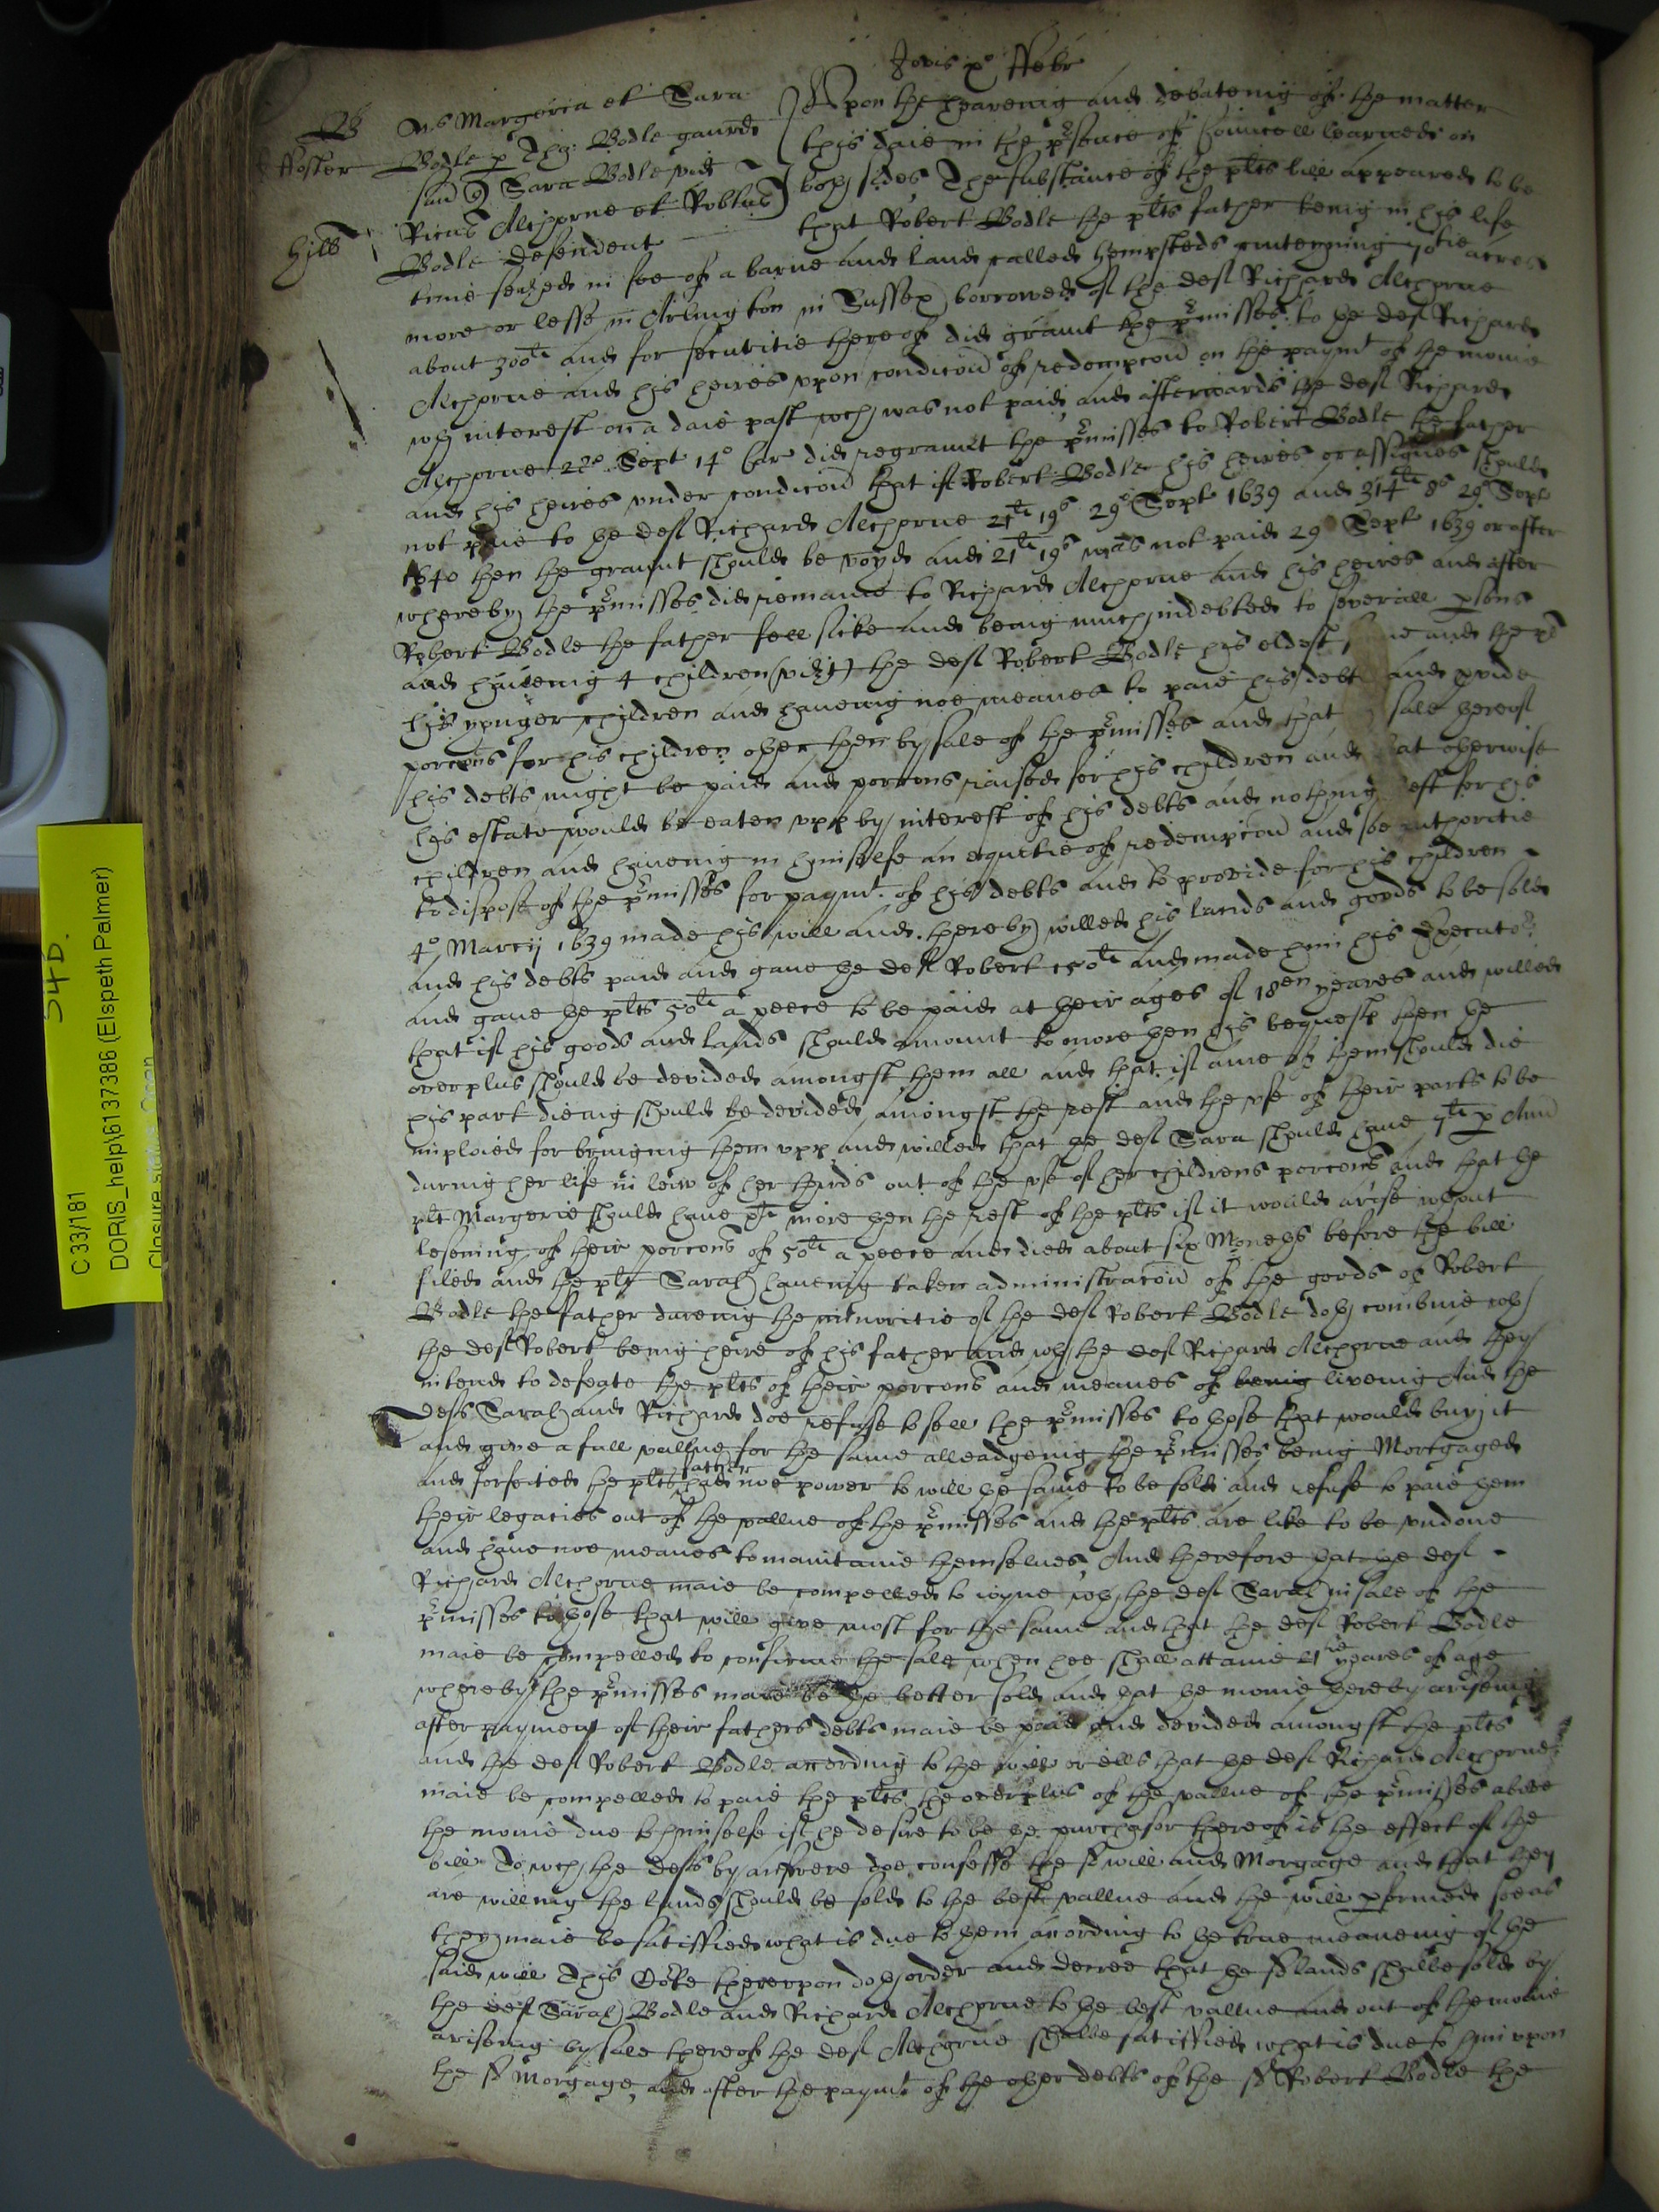 Jovis xo ffebr
QB
ffoster
hills
Margeria et Sara
Bodle p Tho: Bodle gaurd
Sara Bodle vid
Ricus Alchorne et Robtus
Bodle defendent
Upon the heareing and debateing of the matter
this daie in the psence of Councell learned on
both sides The substance of the plts bill appeared to be
that Robert Bodle the plts father being in his life
time seized in fee of a barne and land called Hempsteds conteyning 70tie acres
more or lesse in Arlington in Sussex borrowed of the deft Richard Alchorne
about 300li and for securitie thereof did graunt the pmisses to the deft Richard
Alchorne and his heires upon condicon of redempcon on the paymt of the monie
wth interest on a daie past wch was not paid and afterwards the deft Richard
Alchorne 28o Sept 14o Car did regraunt the pmisses to Robert Bodle the father
and his heires under condicon that if Robert Bodle his heires or assignes should
not paie to the deft Richard Alchorne 21li 19s 29o Sept 1639 and 314li 8s 29o Sept
1640 then the graunt should be voyd and 21li 19s was not paid 29 Sept 1639 or after
whereby the pmisses did remaine to Richard Alchorne and his heires and after
Robert Bodle the father fell sicke and being much indebted to severall psons
and haveing 4 children (vizt) the deft Robert Bodle his eldest and the plts
his younger children and haveing noe meanes to paie his debts and pvide
porcons for his children other then by sale of the pmisses and that sale thereof
his debts might be paid and porcons raised for his children and that otherwise
his estate would be eaten upp by interest of his debts and nothing left for his
children and haveing in himselfe an equitie of redempcon and soe authoritie
to dispose of the pmisses for paymt of his debts and to provide for his children
4o Marcij 1639 made his will and thereby willed his lands and goods to be sold
and his debts paid and gave the deft Robert 150li and made him his Executor
and gave the plts 50li a peece to be paid at their ages of 18en yeares and willed
that if his goods and lands should amount to more then his bequests then the
overplus should be devided amongst them all and that if anie of them should die
his part dieing should be devided amongst the rest and the use of their parts to be
imploied for bringing them upp and willed that the deft Sara should have 7li p Ann
during her life in leiw of her thirds out of the use of her childrens porcons and that the
plt Margerie should have xli more then the rest of the plts if it would arise wthout
lesening of their porcons of 50li a peece and died about six Moneths before the bill
filed and the plt Sarah haveing taken administracon of the goods of Robert
Bodle the father dureing the minoritie of the deft Robert Bodle doth combine wth
the deft Robert being heire of his father and wth the deft Richard Alchorne and they
intend to defeate the plts of their porcons and meanes of being liveing And the
defts Sarah and Richard doe refuse to sell the pmisses to those that would buy it
and give a full vallue for the same alleadgeing the pmisses being Mortgaged
and forfeited the plts father had noe power to will the same to be sold and refuse to paie them
their legacies out of the vallue of the pmisses and the plts are like to be undone
and have noe meanes to maintaine themselves, And therefore that the deft
Richard Alchorne maie be compelled to ioyne wth the deft Sarah in sale of the
pmisses to those that will give most for the same and that the deft Robert Bodle
maie be compelled to confirme the sale when hee shall attaine 21 yeares of age
whereby the pmisses maie be the better sold and that the monie thereby ariseing
after payment of their fathers debts maie be paid and devided amongst the plts
and the deft Robert Bodle according to the will or ells that the deft Richard Alchorne
maie be compelled to paie the plts the overplus of the vallue of the pmisses above
the monie due to himselfe if he desire to be the purchasor thereof is the effect of the
bill To wch the defts by answere doe confesse the sd will and Morgage and that they
are willing the lands should be sold to the best vallue and the will pformed soe as
they maie be satisfied what is due to them according to the true meaneing of the
said will This Corte thereupon doth order and decree that the sd lands shalbe sold by
the deft Sarah Bodle and Richard Alchorne to the best vallue and out of the monie
ariseing by sale thereof the deft Alchorne shalbe satisfied what is due to him upon
the sd Morgage, and after the paymt of the other debts of the sd Robert Bodle the
C 33/181
DORIS_help\6137386 (Elspeth Palmer)
Closure status: Open